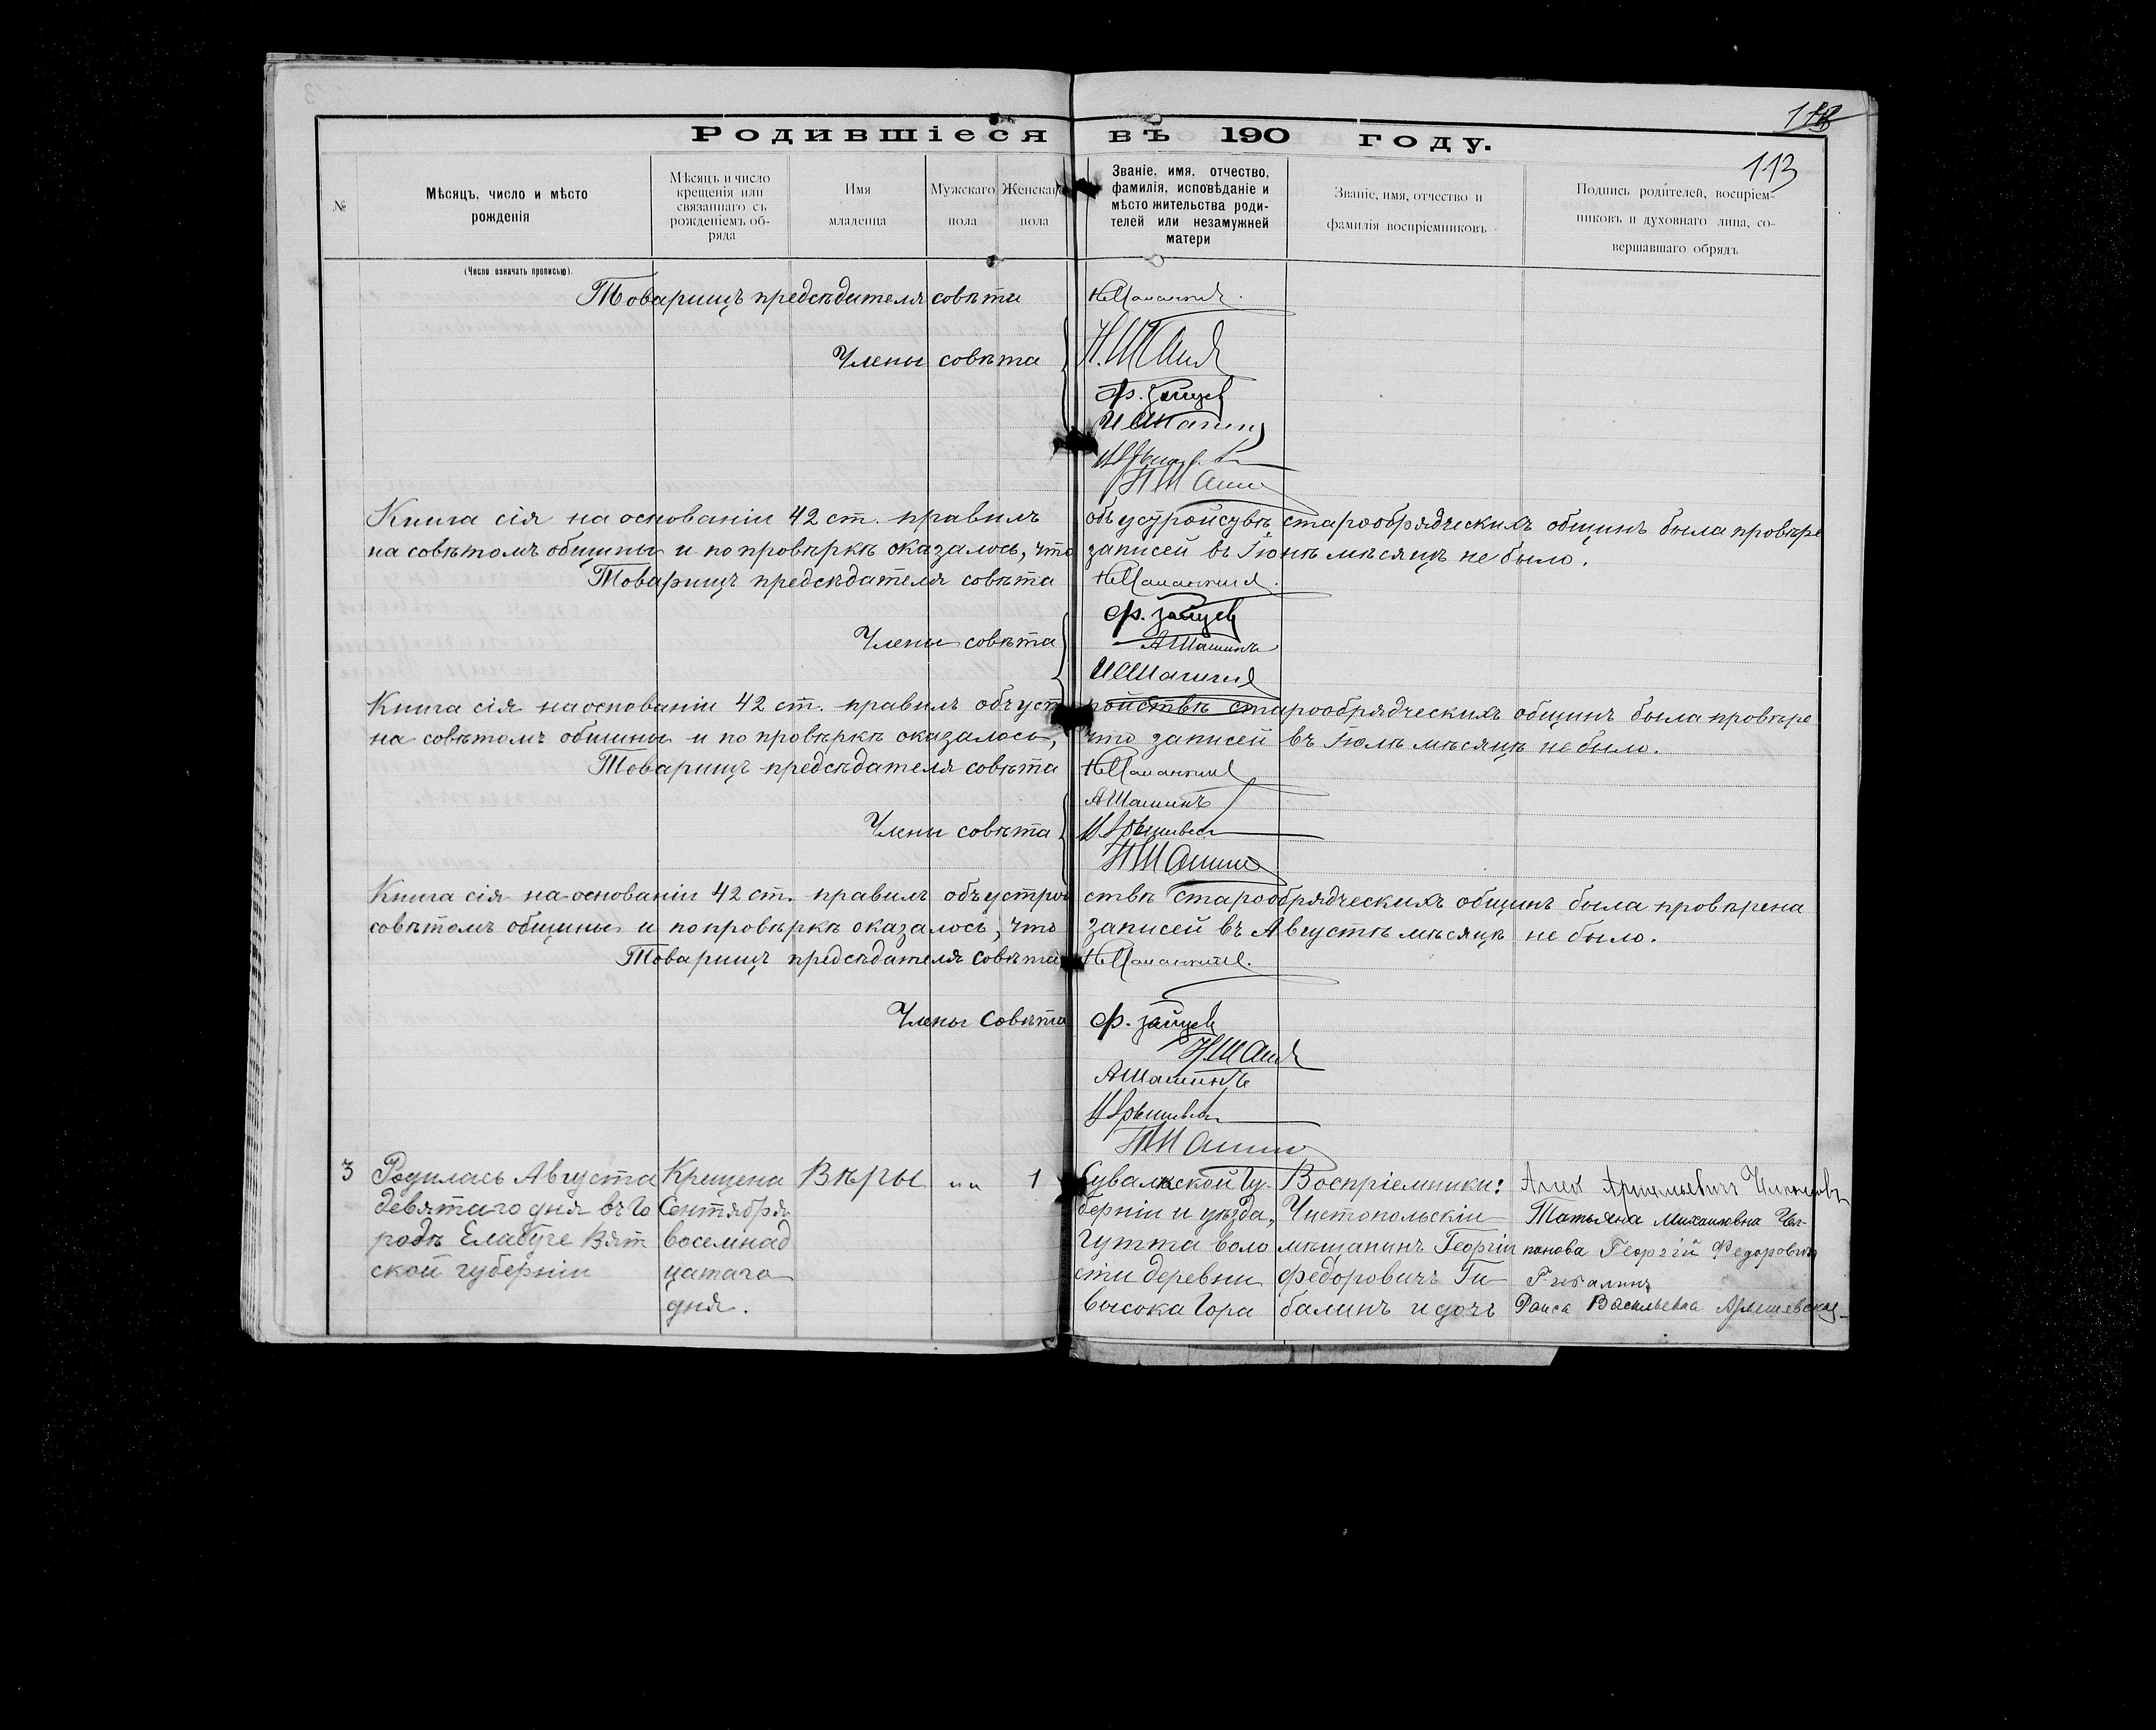 113
Родившіеся въ 190 году.
№
Мѣсяцъ, число и мѣсто
рожденія
(Число означать прописью).
Мѣсяцъ и число
крещенія или
связаннаго съ
рожденіемъ об-
ряда
Имя
младенца
Мужскаго
пола
Женскаго
пола
Званіе, имя, отчество,
фамилія, исповѣданіе и
мѣсто жительства роди-
телей или незамужней
матери
Званіе, имя, отчество и
фамилія воспріемниковъ
Подпись родителей, воспріем-
никовъ и духовнаго лица, со-
вершавшаго обрядъ
Товарищъ предсѣдателя совѣта
Члены совѣта
Ф. Зайцев
Книга сія на основаніи 42 ст. правилъ объ устройствѣ старообрядческихъ общинъ была провѣре
на совѣтомъ общины и по провѣркѣ оказалось, что записей въ Іюнѣ мѣсяцѣ не было.
Товарищъ предсѣдателя совѣта
Члены совѣта
Ф. Зайцев
А Шашинъ
Книга сія на основаніи 42 ст. правилъ объ устройствѣ старообрядческихъ общинъ была провѣре
на совѣтомъ общины и по провѣркѣ оказалось, что записей въ Іюлѣ мѣсяцѣ не было.
Товарищъ предсѣдателя совѣта
Члены совѣта
А Шашинъ
Книга сія на основаніи 42 ст. правилъ объ устройствѣ старообрядческихъ общинъ была провѣрена
совѣтомъ общины и по провѣркѣ оказалось, что записей въ Августѣ мѣсяцѣ не было.
Товарищъ предсѣдателя совѣта
Члены Совѣта
Ф. Зайцев
А Шашинъ
3
Родилась Августа
девятаго дня въ го
родѣ Елабуге Вят
ской губерніи
Крещена
Сентября
восемнад
цатаго
дня.
Вѣры
"
1
Сувалкской Гу-
берніи и уѣзда,
Гутта воло
сти деревни
высока Гора
Воспріемники:
Чистопольскіи
мѣщанинъ Георгіи
Федоровичъ Ги
балинъ и дочь
Татьяна Михаиловна
Георгій Федоровичъ
Гибалинъ
Раиса Васильевна